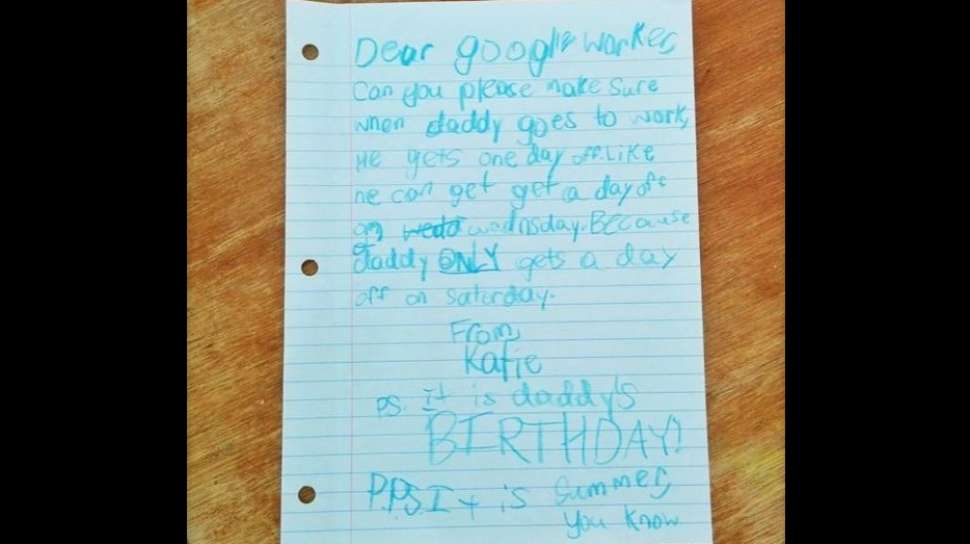 Dear google worker,
Can you please make sure
when daddy goes to work,
He gets one day off. Like
he can get get a day off
on wedd wednsday. Because
daddy ONLY gets a day
off on saturday.
From,
Katie
P.S. It is daddy's
BIRTHDAY!
P.P.S. It is summer,
you know